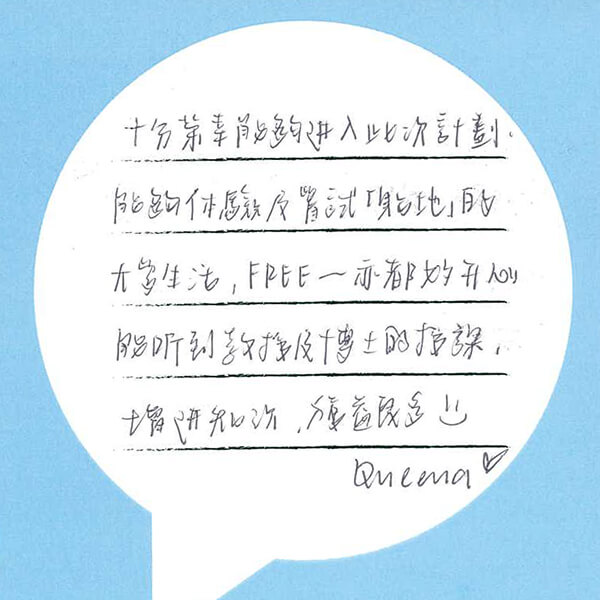 十分荣幸能夠进入此次計劃.
能夠体驗及嘗試「貼地」的
大学生活, FREE～亦都好开心
能听到教授及博士的授課,
增进知识, 獲益良多 :)
Queena ♡